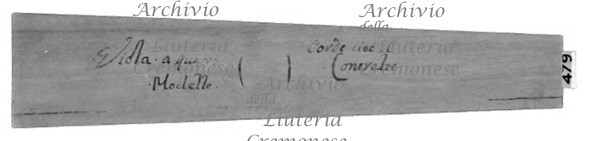 Archivio
della
Liuteria
Cremonese
Archivio
della
Liuteria
Cremonese
Viola a
Modello
Corde
Contralto
479
Archivio
della
Liuteria
Cremonese